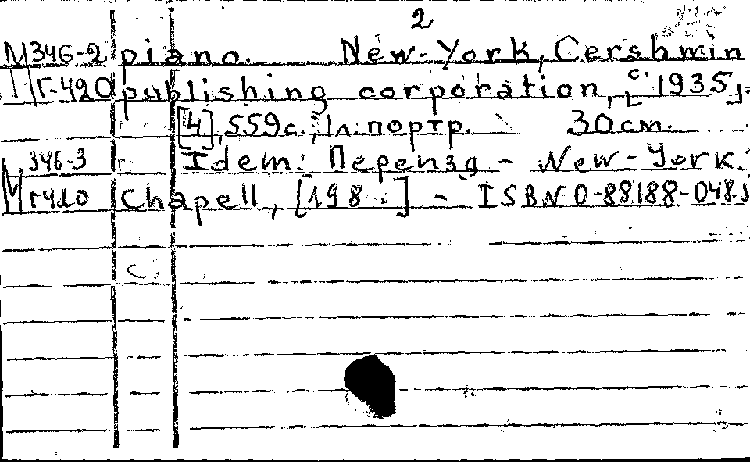 2
М 346-2 piano. New-York, Cershwin
Г-420 publishing corporation, [c. 1935].
[4], 559с., 1л. портр. 30см.
М 346-3 Idem: Переизд - New-York.
Г420 Chapell, [198 ] - ISBN 0-88188-048-